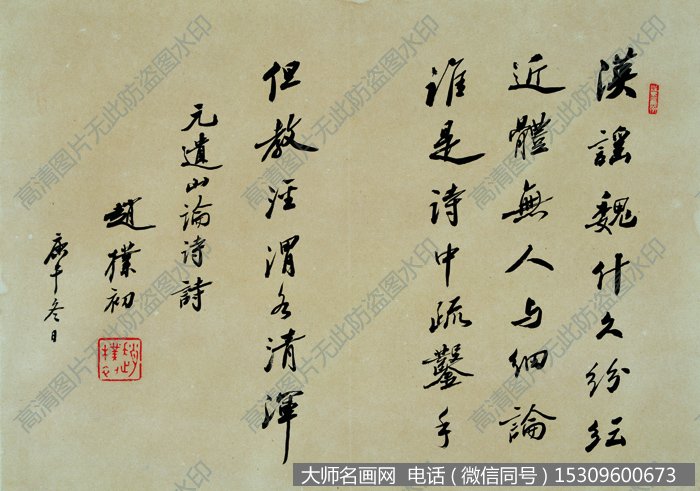 漢謡魏什久紛紜
近體無人与細論
誰是詩中疏鑿手
但教涇渭各清渾
元遺山論詩詩
趙樸初
庚午冬日
高清图片无此防盗图水印
大师名画网 电话（微信同号）15309600673